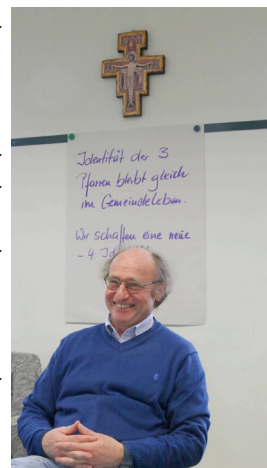 Identität der 3
Pfarren bleibt gleich
im Gemeindeleben.
Wir schaffen eine neue
- 4